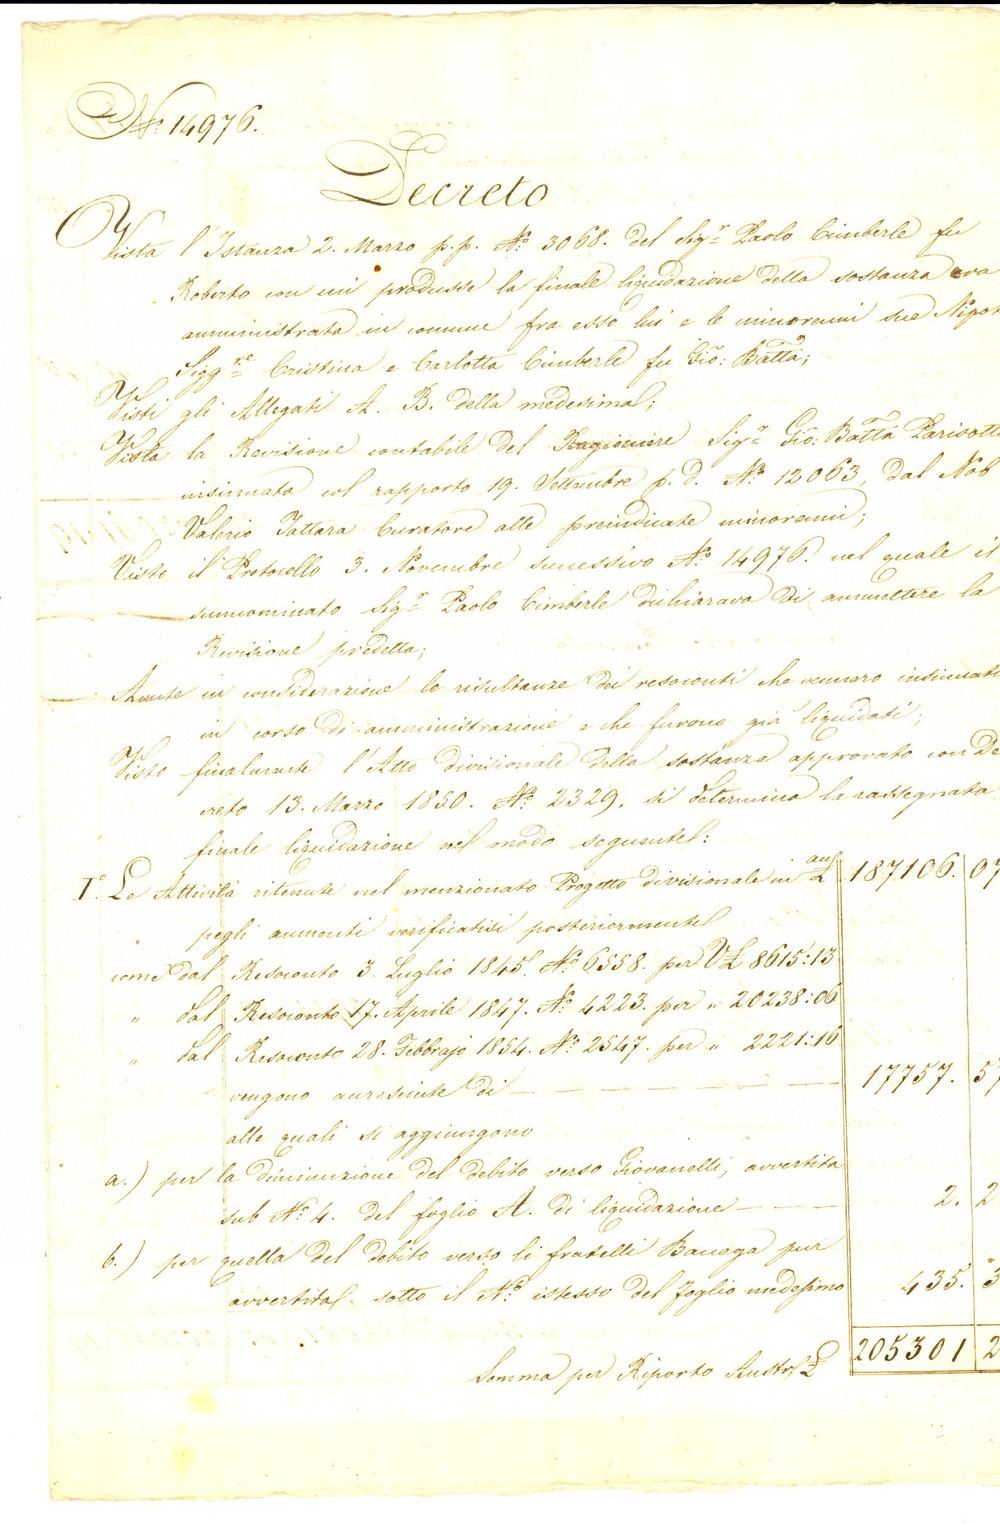 N.º 14976.
Decreto
Vista l'Istanza 2. Marzo p.p. Nº 3068. del Sigr Paolo Cimberle fu
Roberto con cui produsse la finale liquidazione della sostanza era
amministrata in comune fra esso lui e le minorenni sue Nipot
Siggre Cristina e Carlotta Cimberle fu Gio: Batta;
Visti gli Allegati A. B. della medesima;
Vista la Revisione contabile del Ragioniere Sigr Gio: Batta Parisotti
insinuata col rapporto 19. Settembre p.d. Nº 12063, dal Nob
Valerio Fattara Curatore alle preindicate minorenni;
Visto il Protocollo 3. Novembre successivo Nº 14976. nel quale il
sunnominato Sigr Paolo Cimberle dichiarava di ammettere la
Revisione predetta;
Avute in considerazione le risultanze dei resoconti che vennero insinuati
in corso di amministrazione e che furono già liquidati;
Visto finalmente l'Atto divisionale della sostanza approvato con De
creto 13. Marzo 1850. Nº 2329, si determina la rassegnata
finale liquidazione nel modo seguente:
Iº Le Attività ritenute nel menzionato Progetto divisionale in aus£ 187106. 07
" pegli aumenti verificatisi posteriormente
come dal Resoconto 3. Luglio 1845. Nº 6558. per V£ 8615:13
" dal Resoconto 17. Aprile 1847. Nº 4223. per " 20238:06
" dal Resoconto 28. Febbrajo 1854. Nº 2547. per " 2221:16
vengono accresciute di 17757. 57
alle quali si aggiungono
a.) per la diminuzione del debito verso Giovanelli, avvertita
sub Nº 4. del foglio A. di liquidazione 2. 2
b.) per quella del debito verso li fratelli Bauega pur
avvertita sotto il Nº istesso del foglio medesimo 435. 3
Somma per Riporto Austr. £ 205301 2